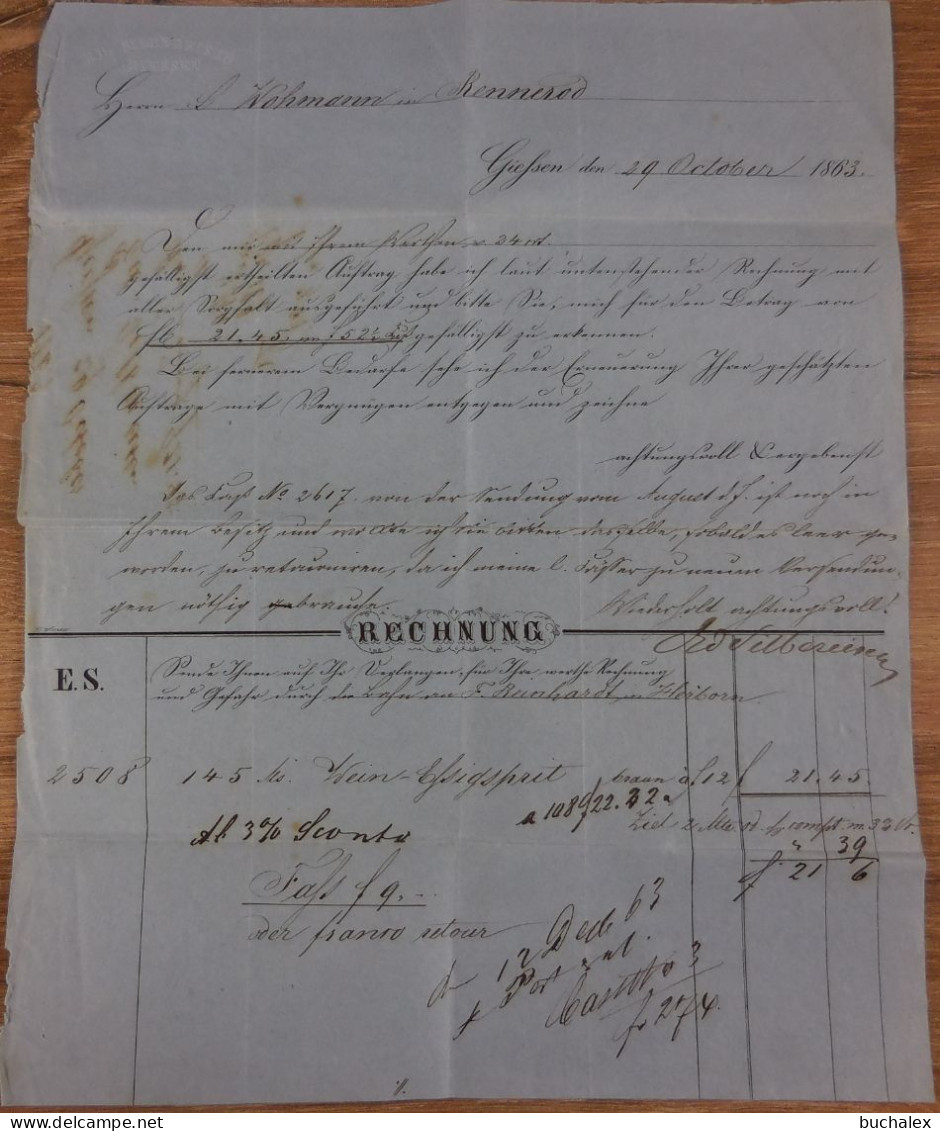 Herrn Wohmann in Rennerod
Giessen den 29 October 1863.
Den mir mit Ihrem Werthen v. 24 ct.
gefälligst ertheilten Auftrag habe ich laut untenstehender Rechnung mit
aller Sorgfalt ausgeführt und bitte Sie, mich für den Betrag von
fl. 21.45. gefälligst zu erkennen.
Bei fernerem Bedarfe sehe ich der Erneuerung Ihrer geschätzten
Aufträge mit Vergnügen entgegen und zeichne
achtungsvoll & ergebenst
Das Faß No 2617 von der Sendung vom August d.J. ist noch in
Ihrem Besitz und wollte ich Sie bitten dasselbe, sobald es leer ge=
worden, zu retourniren, da ich meine l. Fässer zu neuen Versendun=
gen nöthig gebrauche. Wiederholt achtungsvoll!
RECHNUNG
Ed Silbereisen
E.S.
Sende Ihnen auf Ihr Verlangen, für Ihre werthe Rechnung
und Gefahr durch die Bahn an F. Reinhardt in Herborn
2508 145 Wein-Essigsprit braun à f 12 f 21.45.
a 108 f 22.32
Ziel 2 Mte od. compt. m. 3%
Ab 3% Sconto " 39
f. 21 6
Faß f 9. -
oder franco retour
12 Decb 63
Port
3
f 27 4.
buchalex